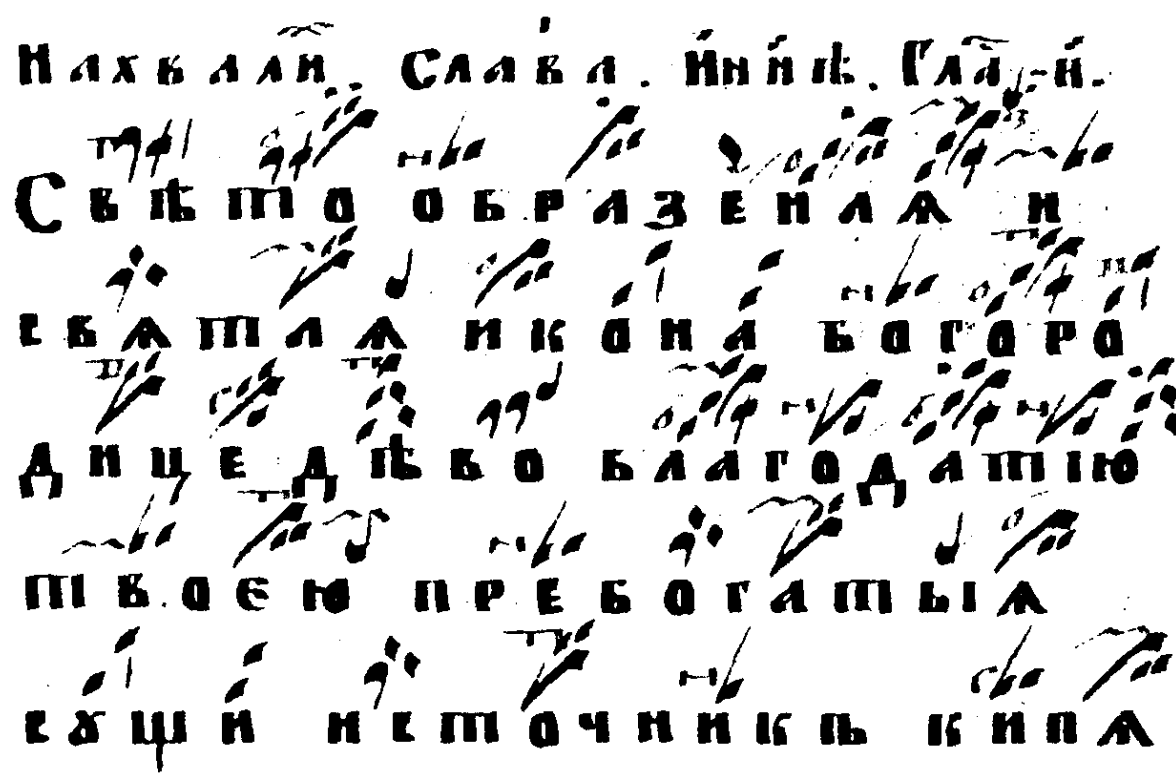 Нахвали . Слава . И нн̀ѣ . Гла и .
Свѣто образеная и
свѧтлаѧ икона богоро
дице дѣво благодатїю
твоєю пребогатыѧ
сꙋщи источникъ кипѧ